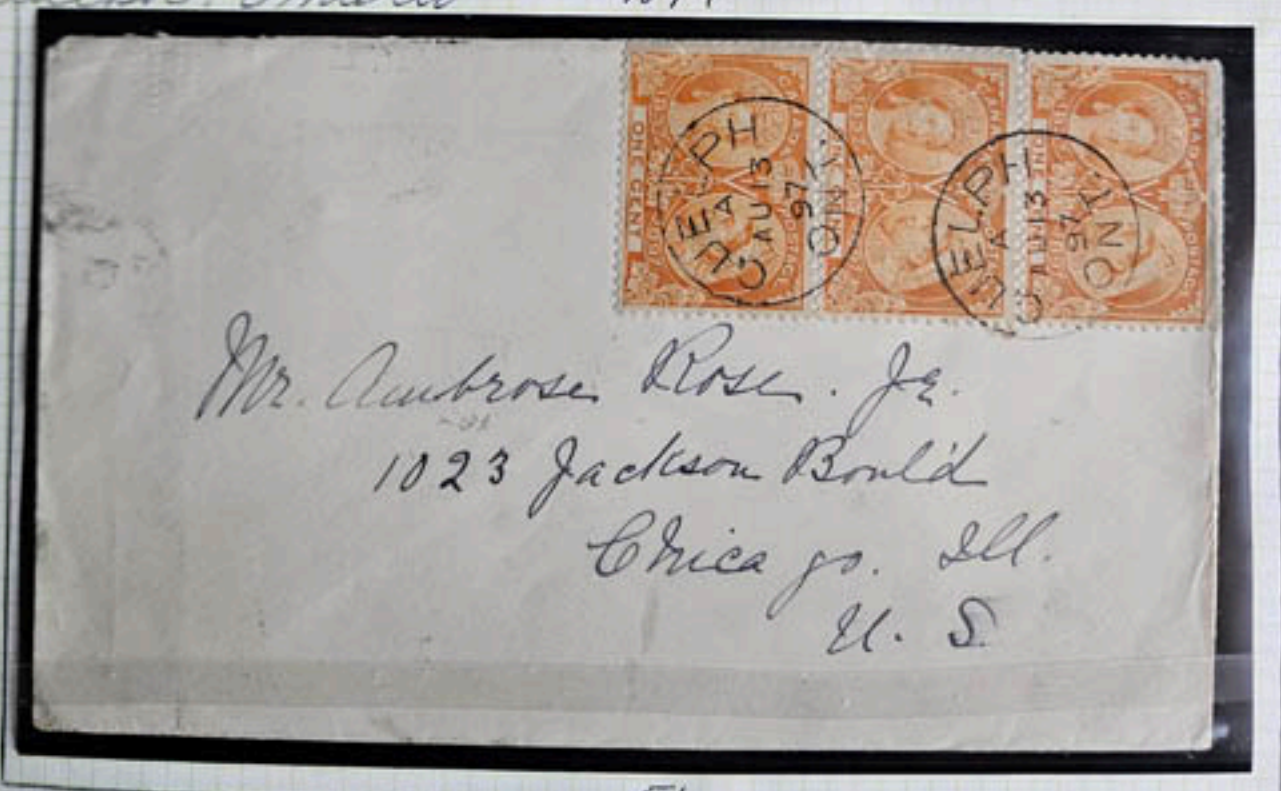 ONE CENT
GUELPH
A
AU 13
97
ONT.
GUELPH
A
AU 13
97
ONT.
Mr. Ambrose Rose. Jr.
1023 Jackson Boul'd
Chicago. Ill.
U. S.